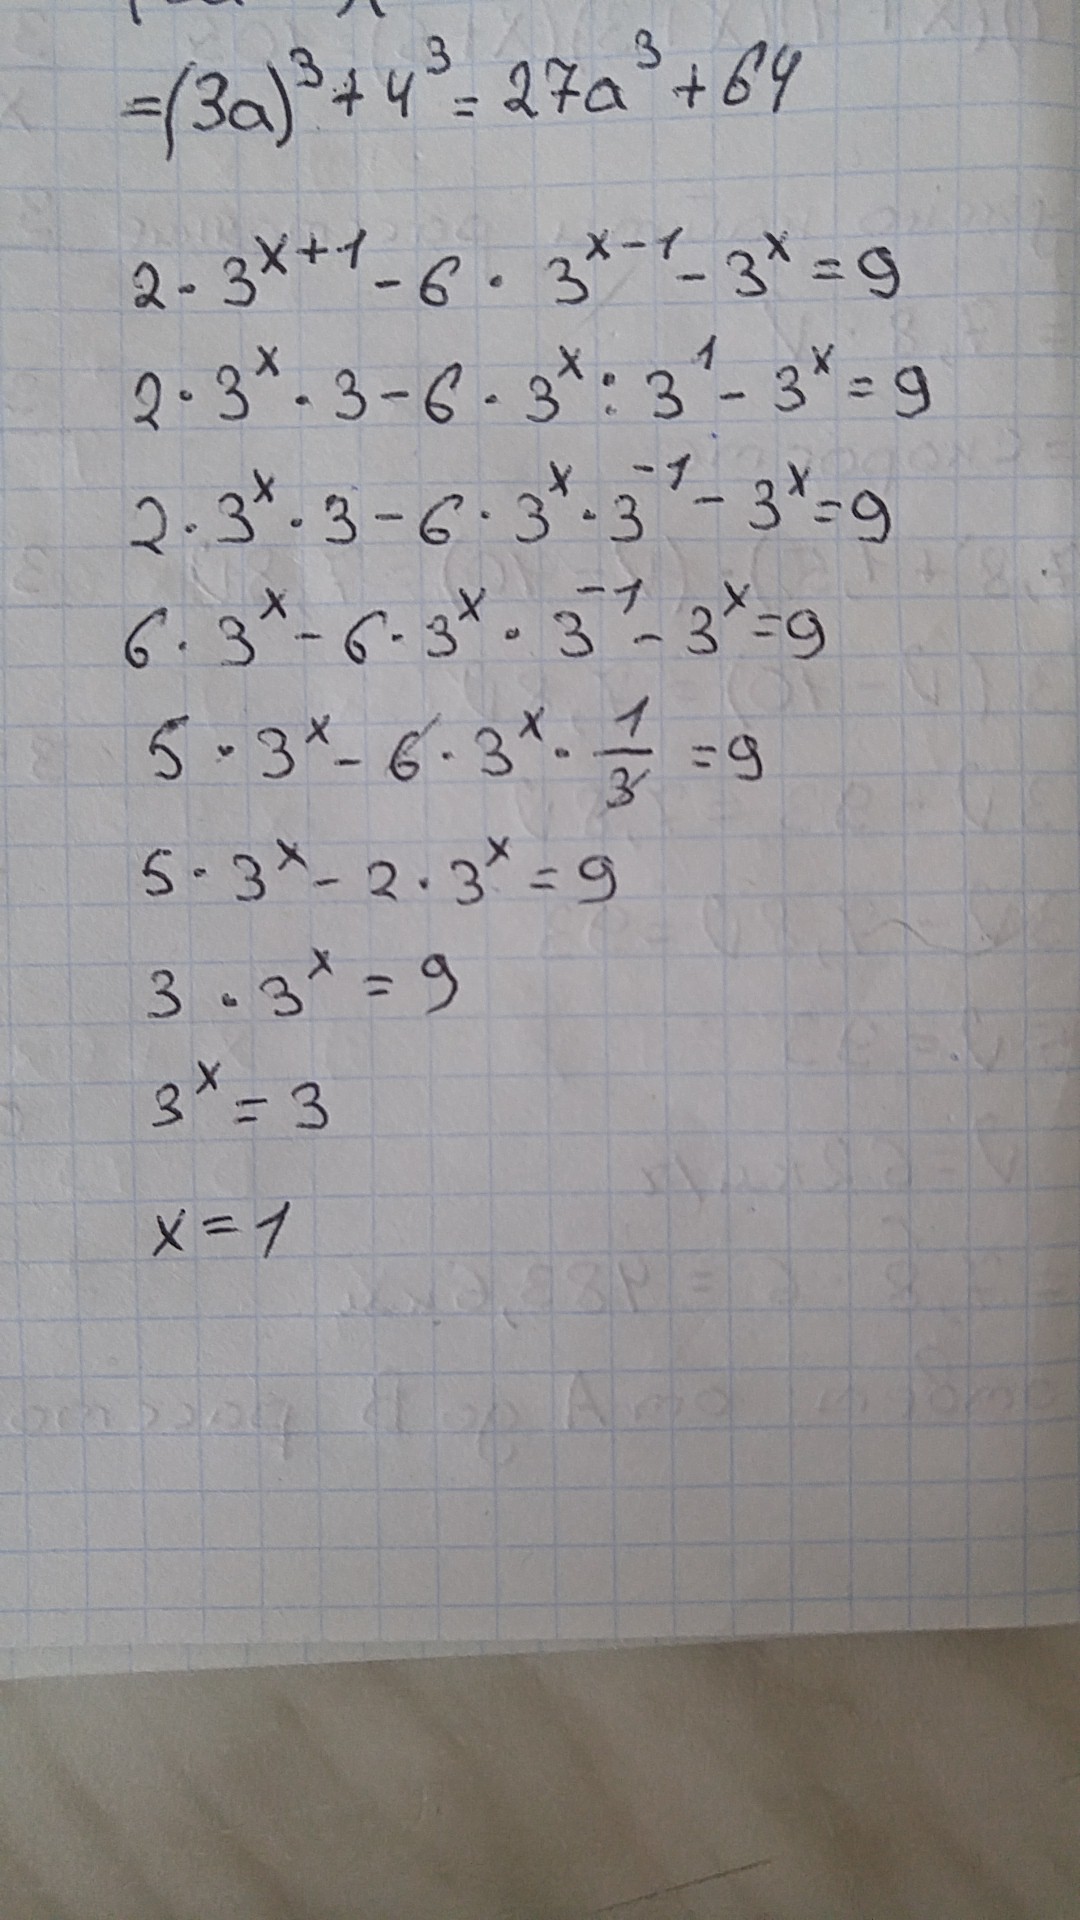 =(3a)³+4³=27a³+64
2·3ˣ⁺¹-6·3ˣ⁻¹-3ˣ=9
2·3ˣ·3-6·3ˣ:3¹-3ˣ=9
2·3ˣ·3-6·3ˣ·3⁻¹-3ˣ=9
6·3ˣ-6·3ˣ·3⁻¹-3ˣ=9
5·3ˣ-6·3ˣ·1/3=9
5·3ˣ-2·3ˣ=9
3·3ˣ=9
3ˣ=3
x=1